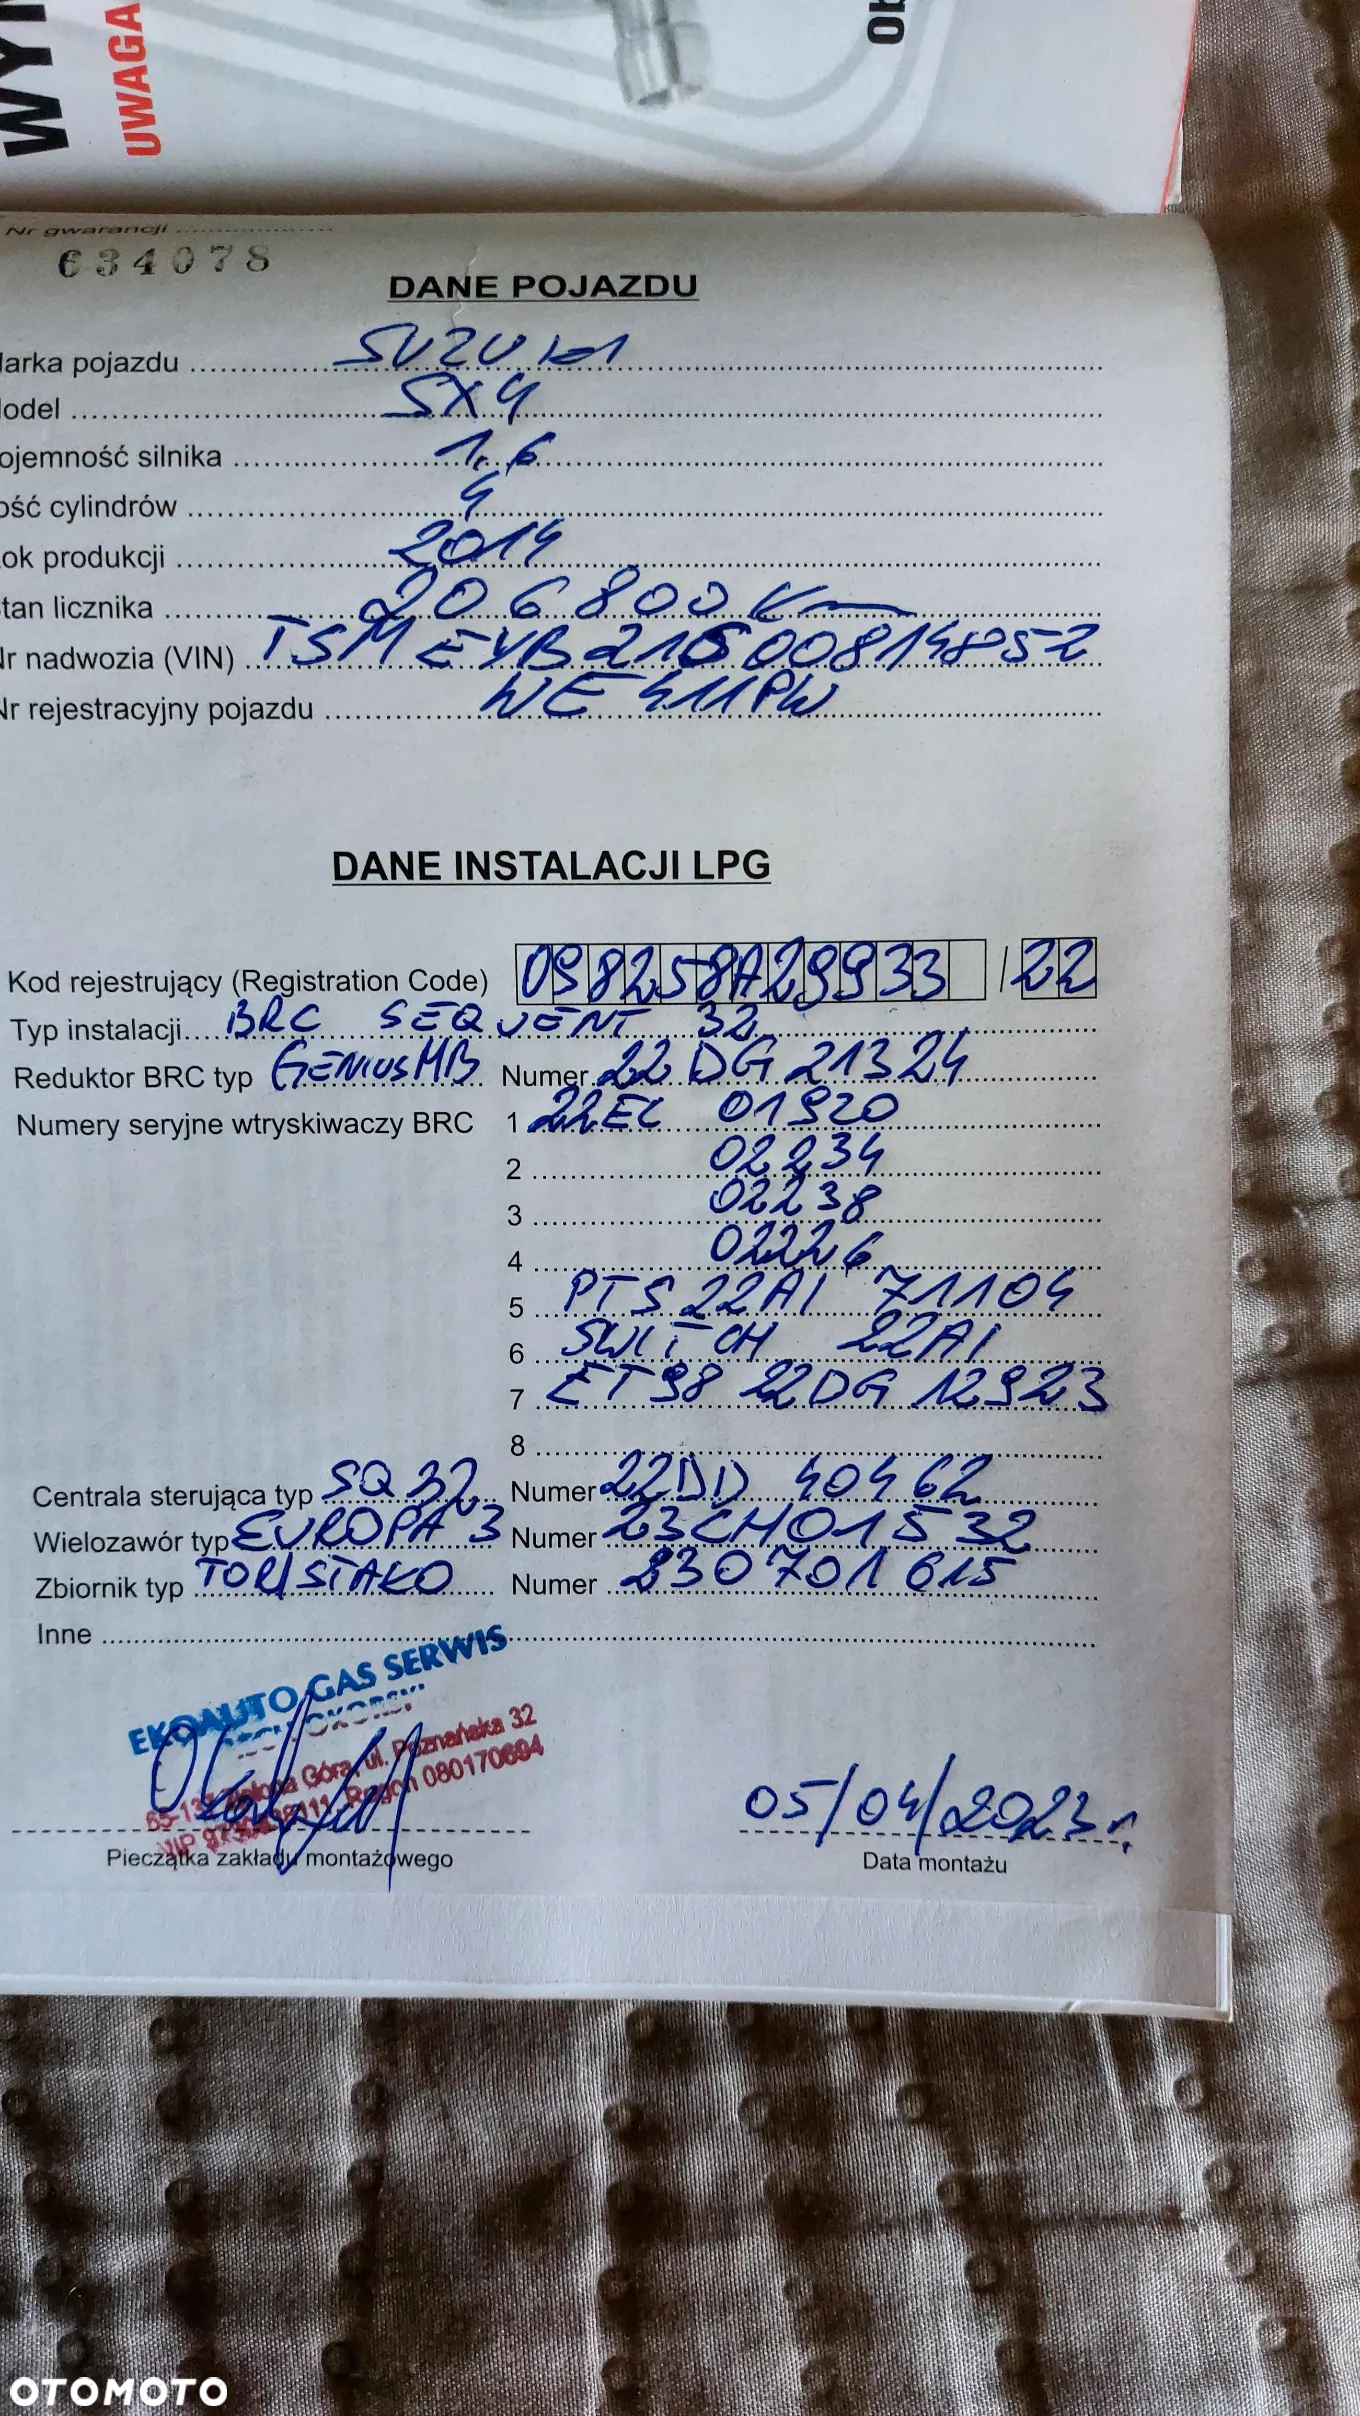 WYM
UWAGA
Ob
Nr gwarancji ....................
634078
DANE POJAZDU
Marka pojazdu SUZUKI
Model SX4
ojemność silnika 1.6
ość cylindrów 4
ok produkcji 2014
tan licznika 206800 km
Nr nadwozia (VIN)
Nr rejestracyjny pojazdu WE 411PW
DANE INSTALACJI LPG
Kod rejestrujący (Registration Code) 098258A29933 / 22
Typ instalacji BRC SEQUENT 32
Reduktor BRC typ GENIUS MB Numer 22DG 21324
Numery seryjne wtryskiwaczy BRC 1 22EC 01920
2 02234
3 02238
4 02226
5 PTS 22AI 71104
6 SWITCH 22AI
7 ET98 22DG 12923
8
Centrala sterująca typ SQ32 Numer 22DD 40462
Wielozawór typ EUROPA 3 Numer 23CH01532
Zbiornik typ TOR/STAKO Numer 230701615
Inne
EKOAUTO GAS SERWIS
Góra, ul. Poznańska 32
Regon 080170694
05/04/2023r.
Pieczątka zakładu montażowego
Data montażu
OTOMOTO